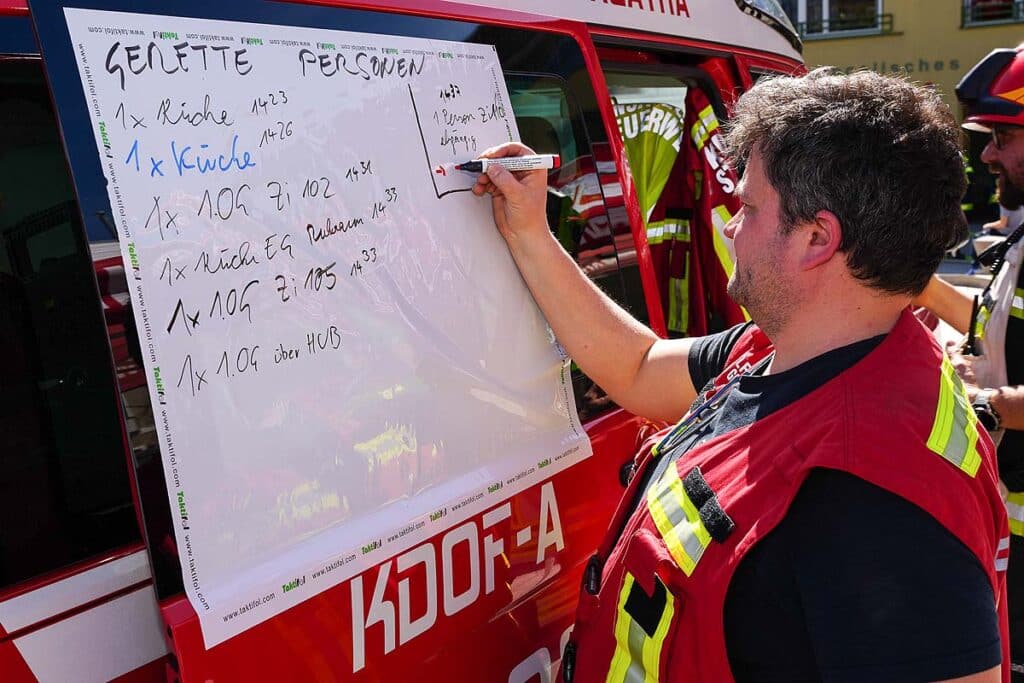 GERETTE PERSONEN
1x Küche 1423
1x Küche 1426
1x 1.OG Zi 102 1431
1x Küche EG 1433
1x 1.OG Zi 105 1433
1x 1.OG über HUB
1437
1 Person
abgängig
www.taktifol.com
Taktifol
KDOF-A
FEUERW